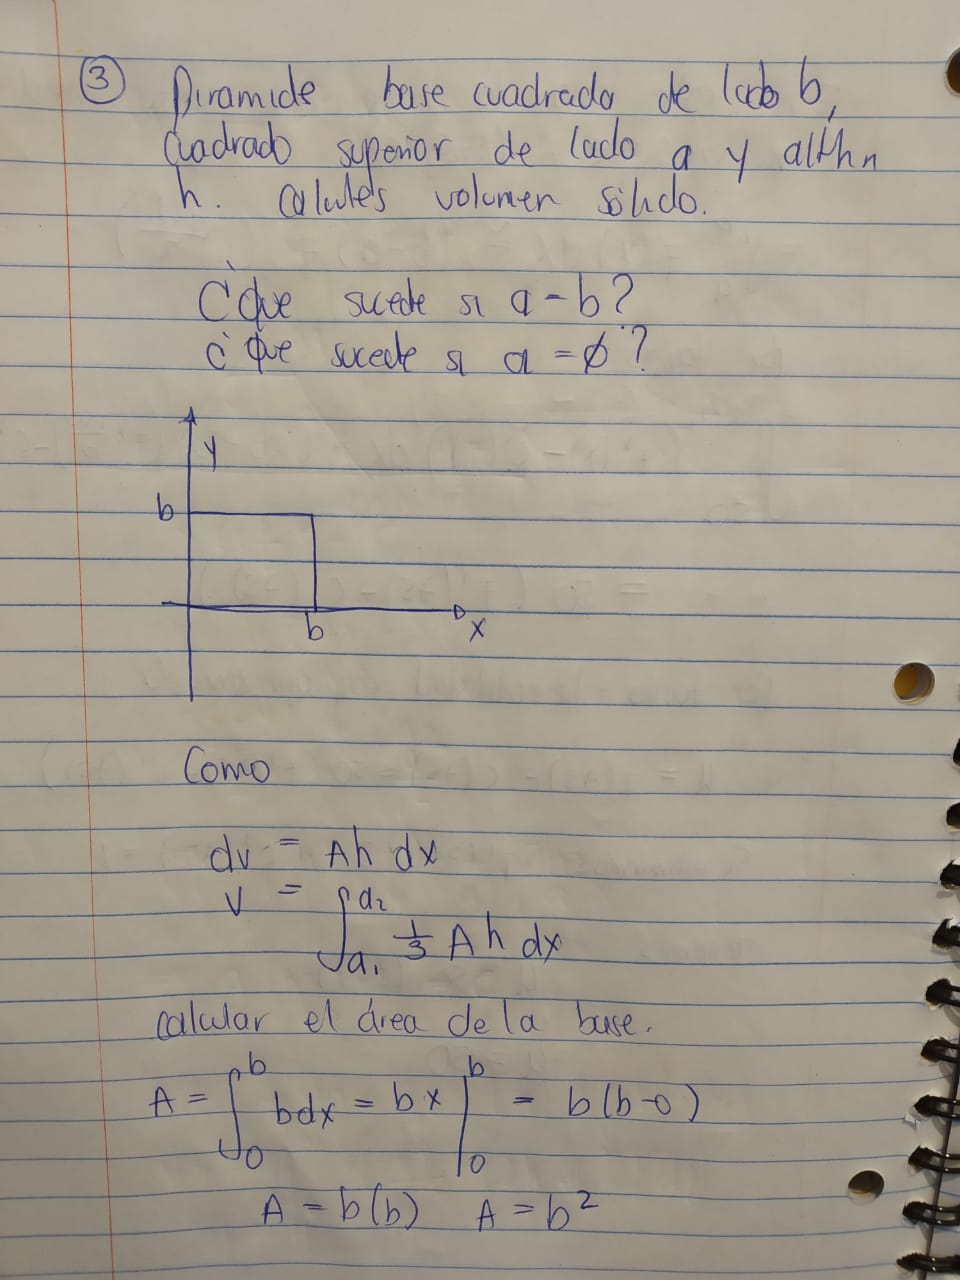 3 Piramide base cuadrada de lado b,
Cuadrado superior de lado a y altura
h. Calcules volumen sólido.
¿Que sucede si a=b?
¿Que sucede si a=ø?
y
b
b
x
Como
dv = Ah dx
v = ∫ₐ₁ᵃ² 1/3 A h dx
calcular el área de la base.
A = ∫₀ᵇ bdx = bx |₀ᵇ = b(b-0)
A = b(b) A = b²